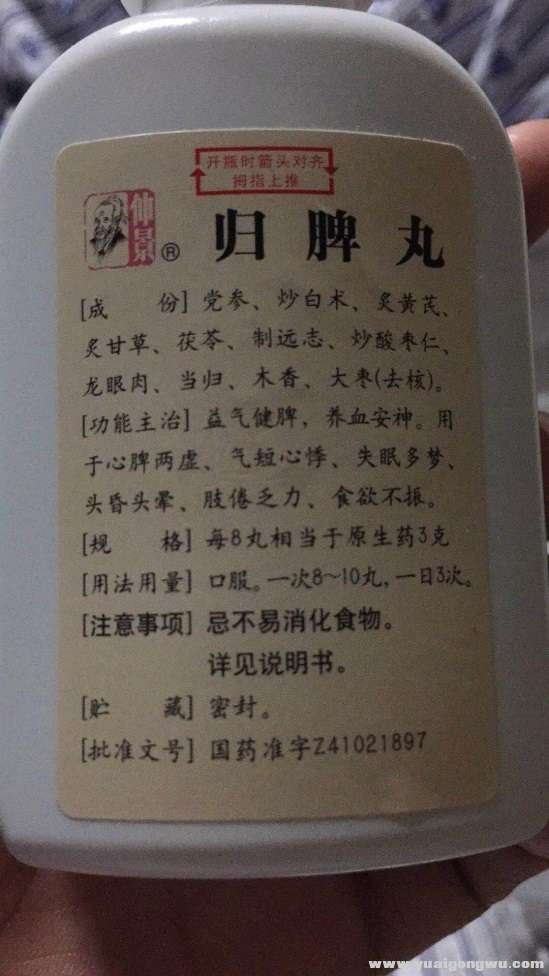 开瓶时箭头对齐
拇指上推
仲景
®
归脾丸
[成份] 党参、炒白术、炙黄芪、
炙甘草、茯苓、制远志、炒酸枣仁、
龙眼肉、当归、木香、大枣(去核)。
[功能主治] 益气健脾，养血安神。用
于心脾两虚、气短心悸、失眠多梦、
头昏头晕、肢倦乏力、食欲不振。
[规格] 每8丸相当于原生药3克
[用法用量] 口服。一次8～10丸,一日3次。
[注意事项] 忌不易消化食物。
详见说明书。
[贮藏] 密封。
[批准文号] 国药准字Z41021897
www.yuaigongwu.com